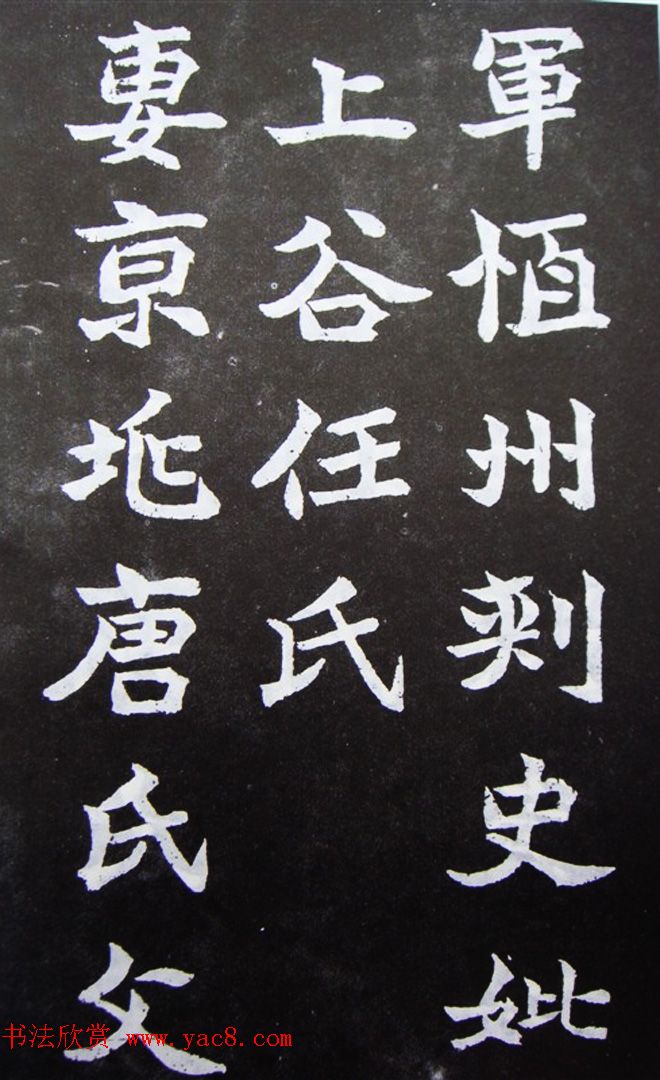 軍恒州刺史妣
上谷任氏
妻京兆唐氏父
书法欣赏 www.yac8.com